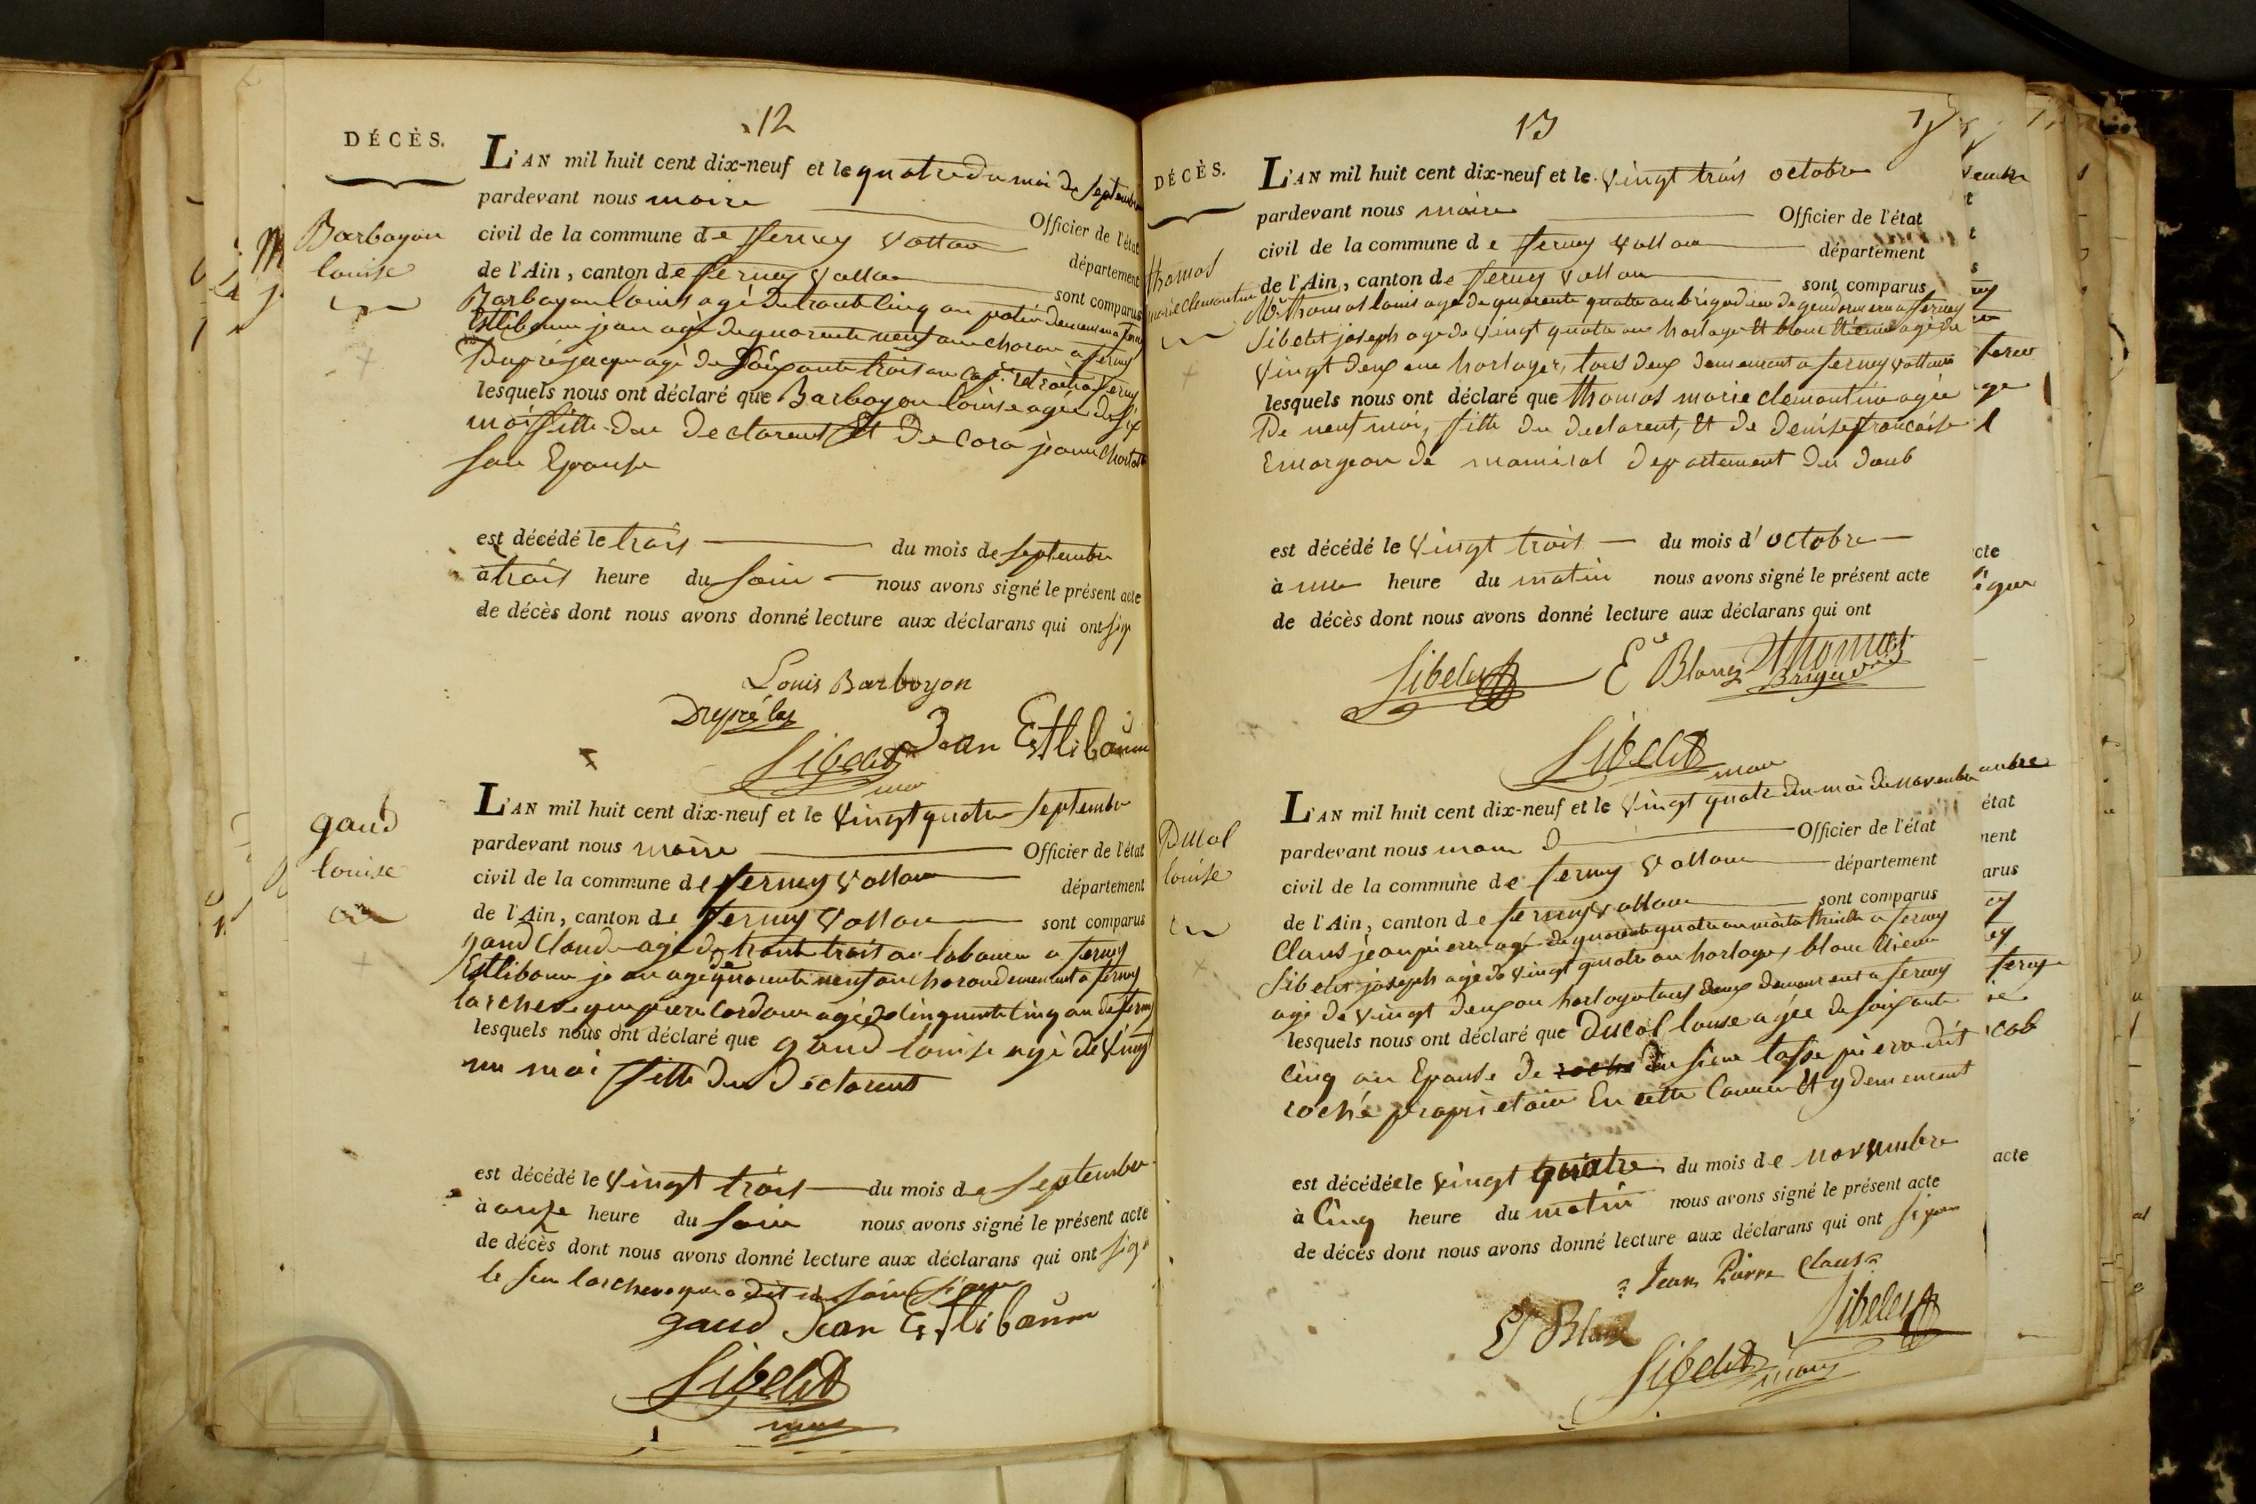 12
DÉCÈS.
Barboyon
louise
L'AN mil huit cent dix-neuf et le quatre du moi de septembre
pardevant nous maire Officier de l'état
civil de la commune de ferney Voltaire département
de l'Ain, canton de ferney Voltaire sont comparus
Barboyon louis agé de trente cinq an potier demeurant a
Estlibaum jean agé de quarante neuf ans charon a ferney
Dupré jacque agé de soixante trois an retraité a ferney
lesquels nous ont déclaré que Barboyon louise agée de six
moi fille du declarent Et de Cora jeanne
son Epouse
est décédé le trois du mois de septembre
à trois heure du soir nous avons signé le présent acte
de décès dont nous avons donné lecture aux déclarans qui ont
Louis Barboyon
Dupré
Jean Estlibaum
Sibelit
gaud
louise
L'AN mil huit cent dix-neuf et le Vingt quatre septembre
pardevant nous maire Officier de l'état
civil de la commune de ferney Voltaire département
de l'Ain, canton de ferney Voltaire sont comparus
gaud Claude agé de trente trois an laboureur a ferney
Estlibaum jean agé de quarante neuf an charon demeurant a ferney
larcheveque pierre Cordonier agé de Cinquante Cinq an de ferney
lesquels nous ont déclaré que gaud louise agé de Vingt
un moi fille du déclarent
est décédé le Vingt trois du mois de septembre
à onze heure du soir nous avons signé le présent acte
de décès dont nous avons donné lecture aux déclarans qui ont signé
le sieur larcheveque a dit
gaud Jean Estlibaum
Sibelit
13
DÉCÈS.
thomas
marie clemantine
L'AN mil huit cent dix-neuf et le Vingt trois octobre
pardevant nous maire Officier de l'état
civil de la commune de ferney Voltaire département
de l'Ain, canton de ferney Voltaire sont comparus
Mr thomas louis agé de quarante quatre an brigadier de gendarmerie a ferney
Sibelit joseph agé de Vingt quatre an horloger Et blanc Etienne agé de
Vingt deux ans horloger, tous deux demeurant a ferney Voltaire
lesquels nous ont déclaré que thomas marie clemantine agée
De neuf moi, fille du declarent, Et de denise françoise
Emorgeon de mamirol departement du doub
est décédé le Vingt trois du mois d'octobre
à une heure du matin nous avons signé le présent acte
de décès dont nous avons donné lecture aux déclarans qui ont
Sibelit Ee Blanc Thomas
Brigad
Sibelit
maire
Ducol
louise
L'AN mil huit cent dix-neuf et le Vingt quatre du moi de novembre
pardevant nous maire Officier de l'état
civil de la commune de ferney Voltaire département
de l'Ain, canton de ferney Voltaire sont comparus
Claus jean pierre agé de quarante quatre an a ferney
Sibelit joseph agé de Vingt quatre an horloger, blanc Etienne
agé de Vingt deux an horloger tous deux demeurant a ferney
lesquels nous ont déclaré que Ducol louise agée de soixante
Cinq an Epouse de du sieur tasse pierre dit
roché propriétaire En cette Comune Et y demeurant
est décédée le Vingt quatre du mois de novembre
à Cinq heure du matin nous avons signé le présent acte
de décès dont nous avons donné lecture aux déclarans qui ont signé
Jean Pierre Claus
Et Blanc
Sibelit
Sibelit
maire